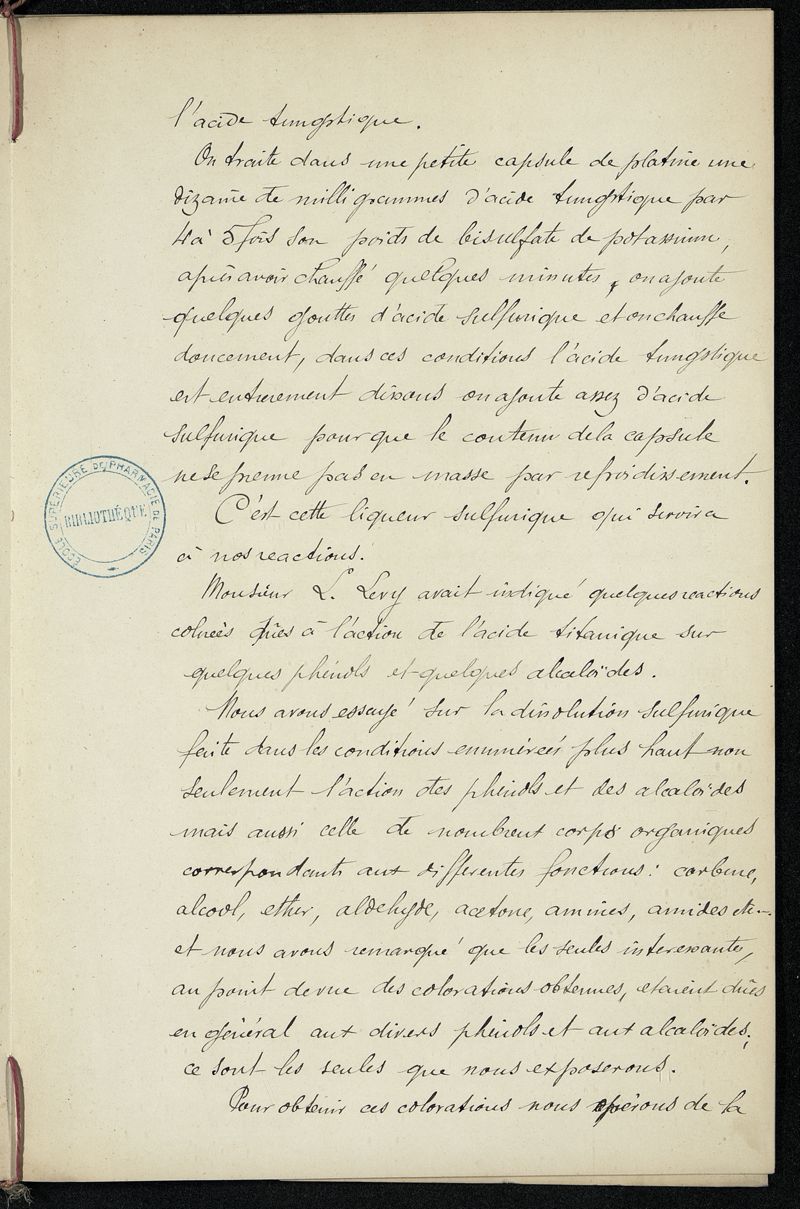 l'acide tungstique.
On traite dans une petite capsule de platine une
dizaine de milligrammes d'acide tungstique par
4 à 5 fois son poids de bisulfate de potassium,
après avoir chauffé quelques minutes, on ajoute
quelques gouttes d'acide sulfurique et on chauffe
doucement, dans ces conditions l'acide tungstique
est entierement dissous on ajoute assez d'acide
sulfurique pour que le contenu de la capsule
ne se prenne pas en masse par refroidissement.
C'est cette liqueur sulfurique qui servira
à nos reactions.
Monsieur L. Levy avait indiqué quelques reactions
colorées dûes à l'action de l'acide titanique sur
quelques phénols et quelques alcaloïdes.
Nous avons essayé sur la dissolution sulfurique
faite dans les conditions enumérées plus haut non
seulement l'action des phénols et des alcaloïdes
mais aussi celle de nombreux corps organiques
correspondants aux differentes fonctions: carbure,
alcool, ether, aldehyde, acetone, amines, amides etc...
et nous avons remarqué que les seules interessantes,
au point de vue des colorations obtenues, etaient dûes
en général aux divers phénols et aux alcaloïdes;
ce sont les seules que nous exposerons.
Pour obtenir ces colorations nous opérons de la
ÉCOLE SUPÉRIEURE DE PHARMACIE DE PARIS
BIBLIOTHÈQUE